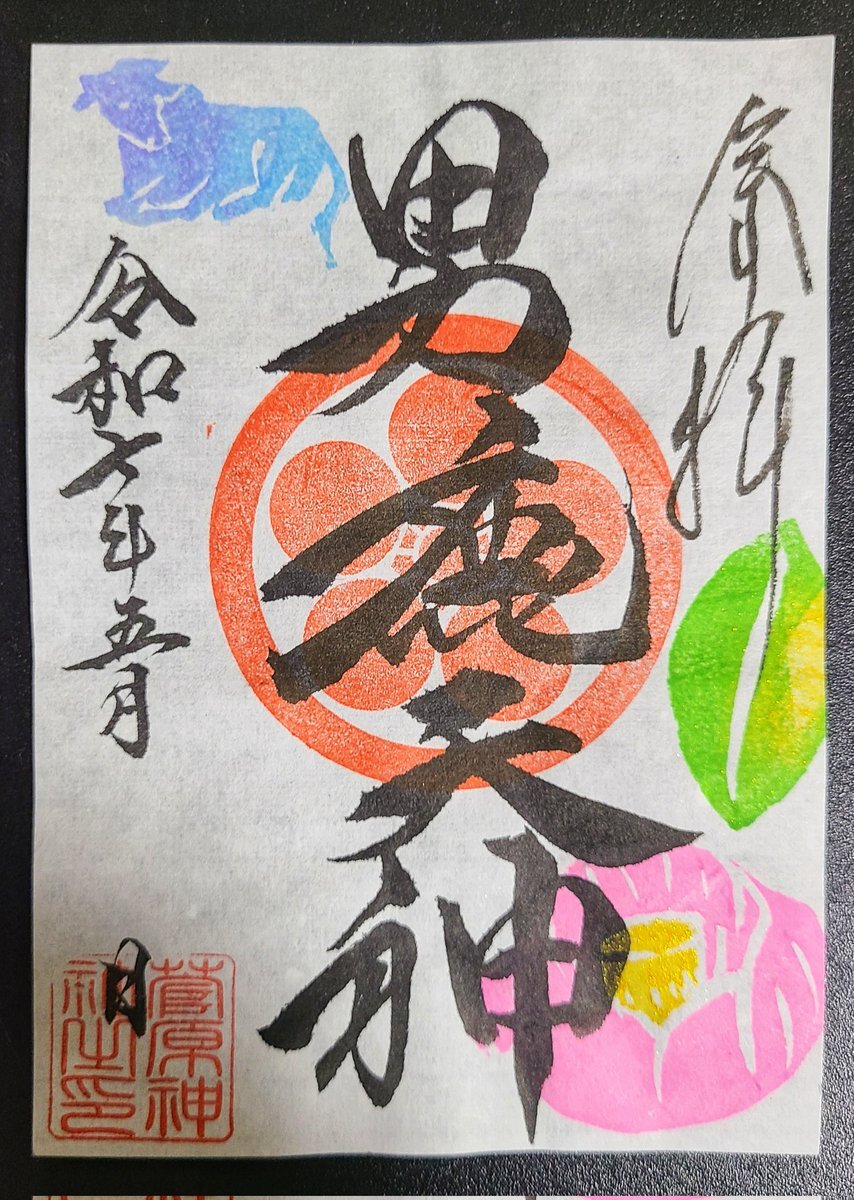 奉拝
男鹿天神
令和七年五月
日
菅原神
社之印